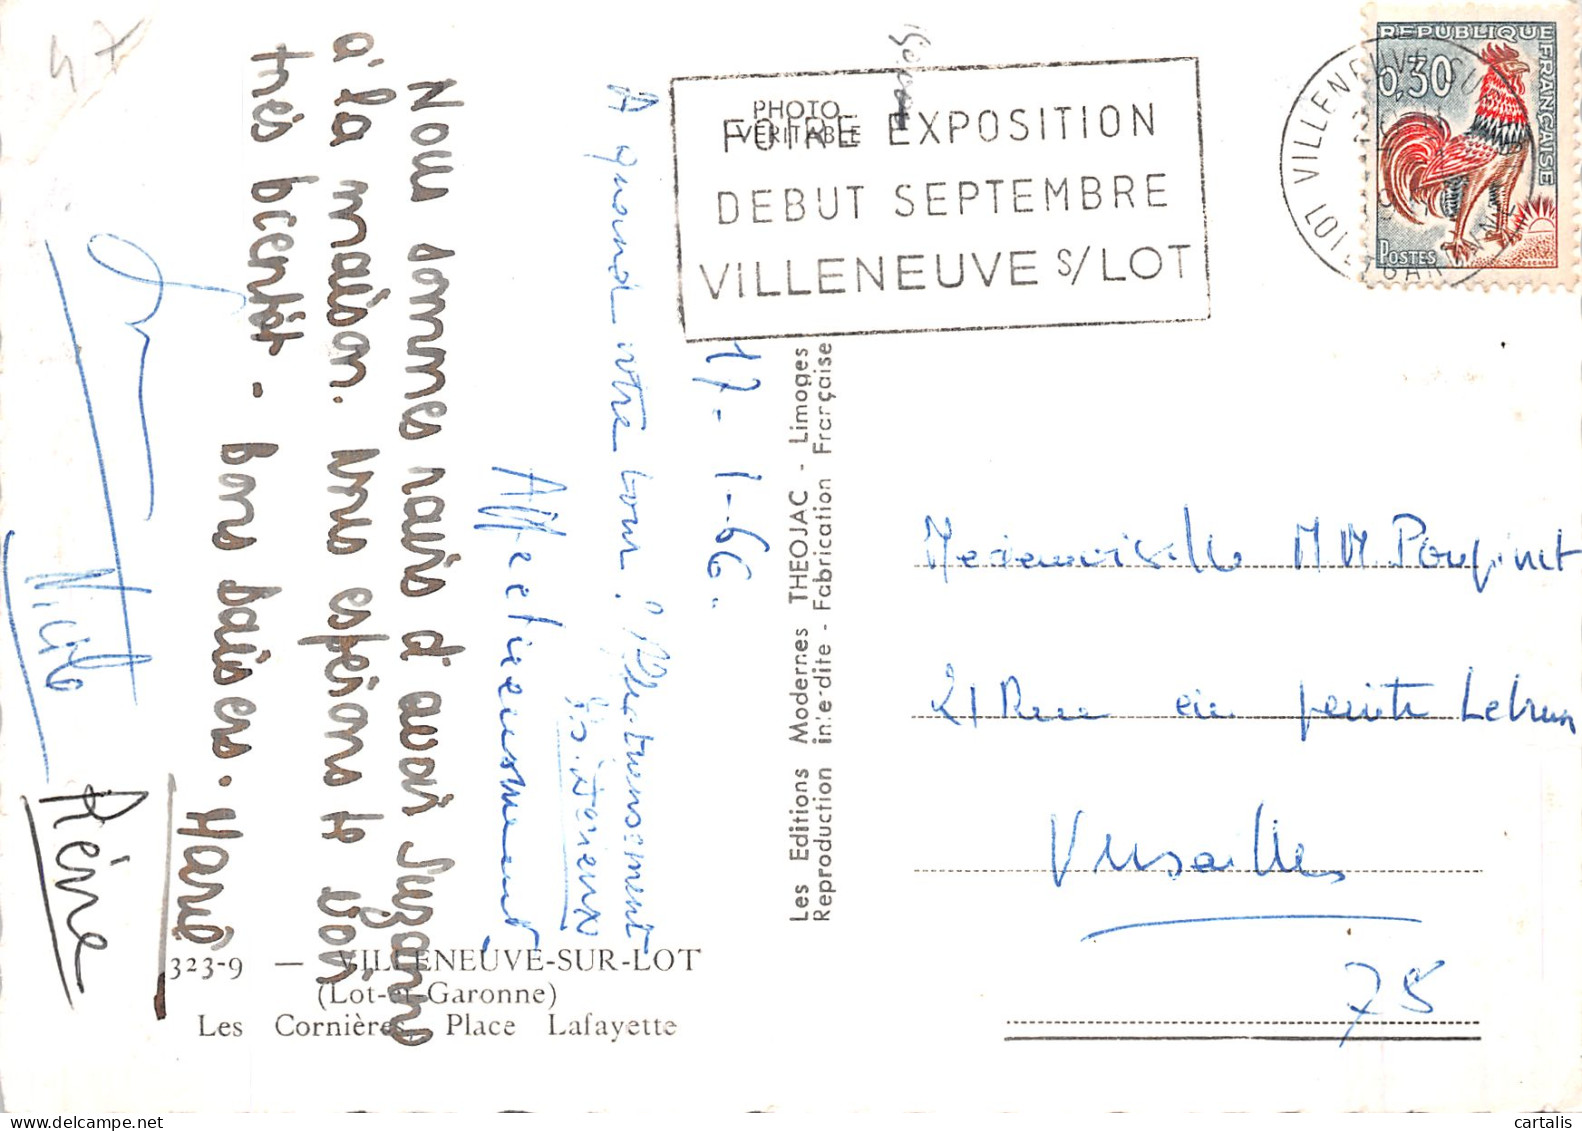 17-1-66.
A quand votre tour ?
Affectueusement
Nous sommes ravis d'avoir Suzanne
à la maison. Nous espérons te voir
très bientôt - bons baisers. Marie
Nicole
Rémi
323-9 — VILLENEUVE-SUR-LOT
(Lot-et-Garonne)
Les Cornières, Place Lafayette
Les Editions Modernes THEOJAC - Limoges
Reproduction interdite - Fabrication Française
PHOTO
VERITABLE
FOIRE EXPOSITION
DEBUT SEPTEMBRE
VILLENEUVE S/LOT
REPUBLIQUE FRANÇAISE
0,30
POSTES
DECARIS
VILLENEUVE SUR LOT
Mademoiselle M M. Poupinet
21 Rue du peintre Lebrun
Versailles
78
cartalis